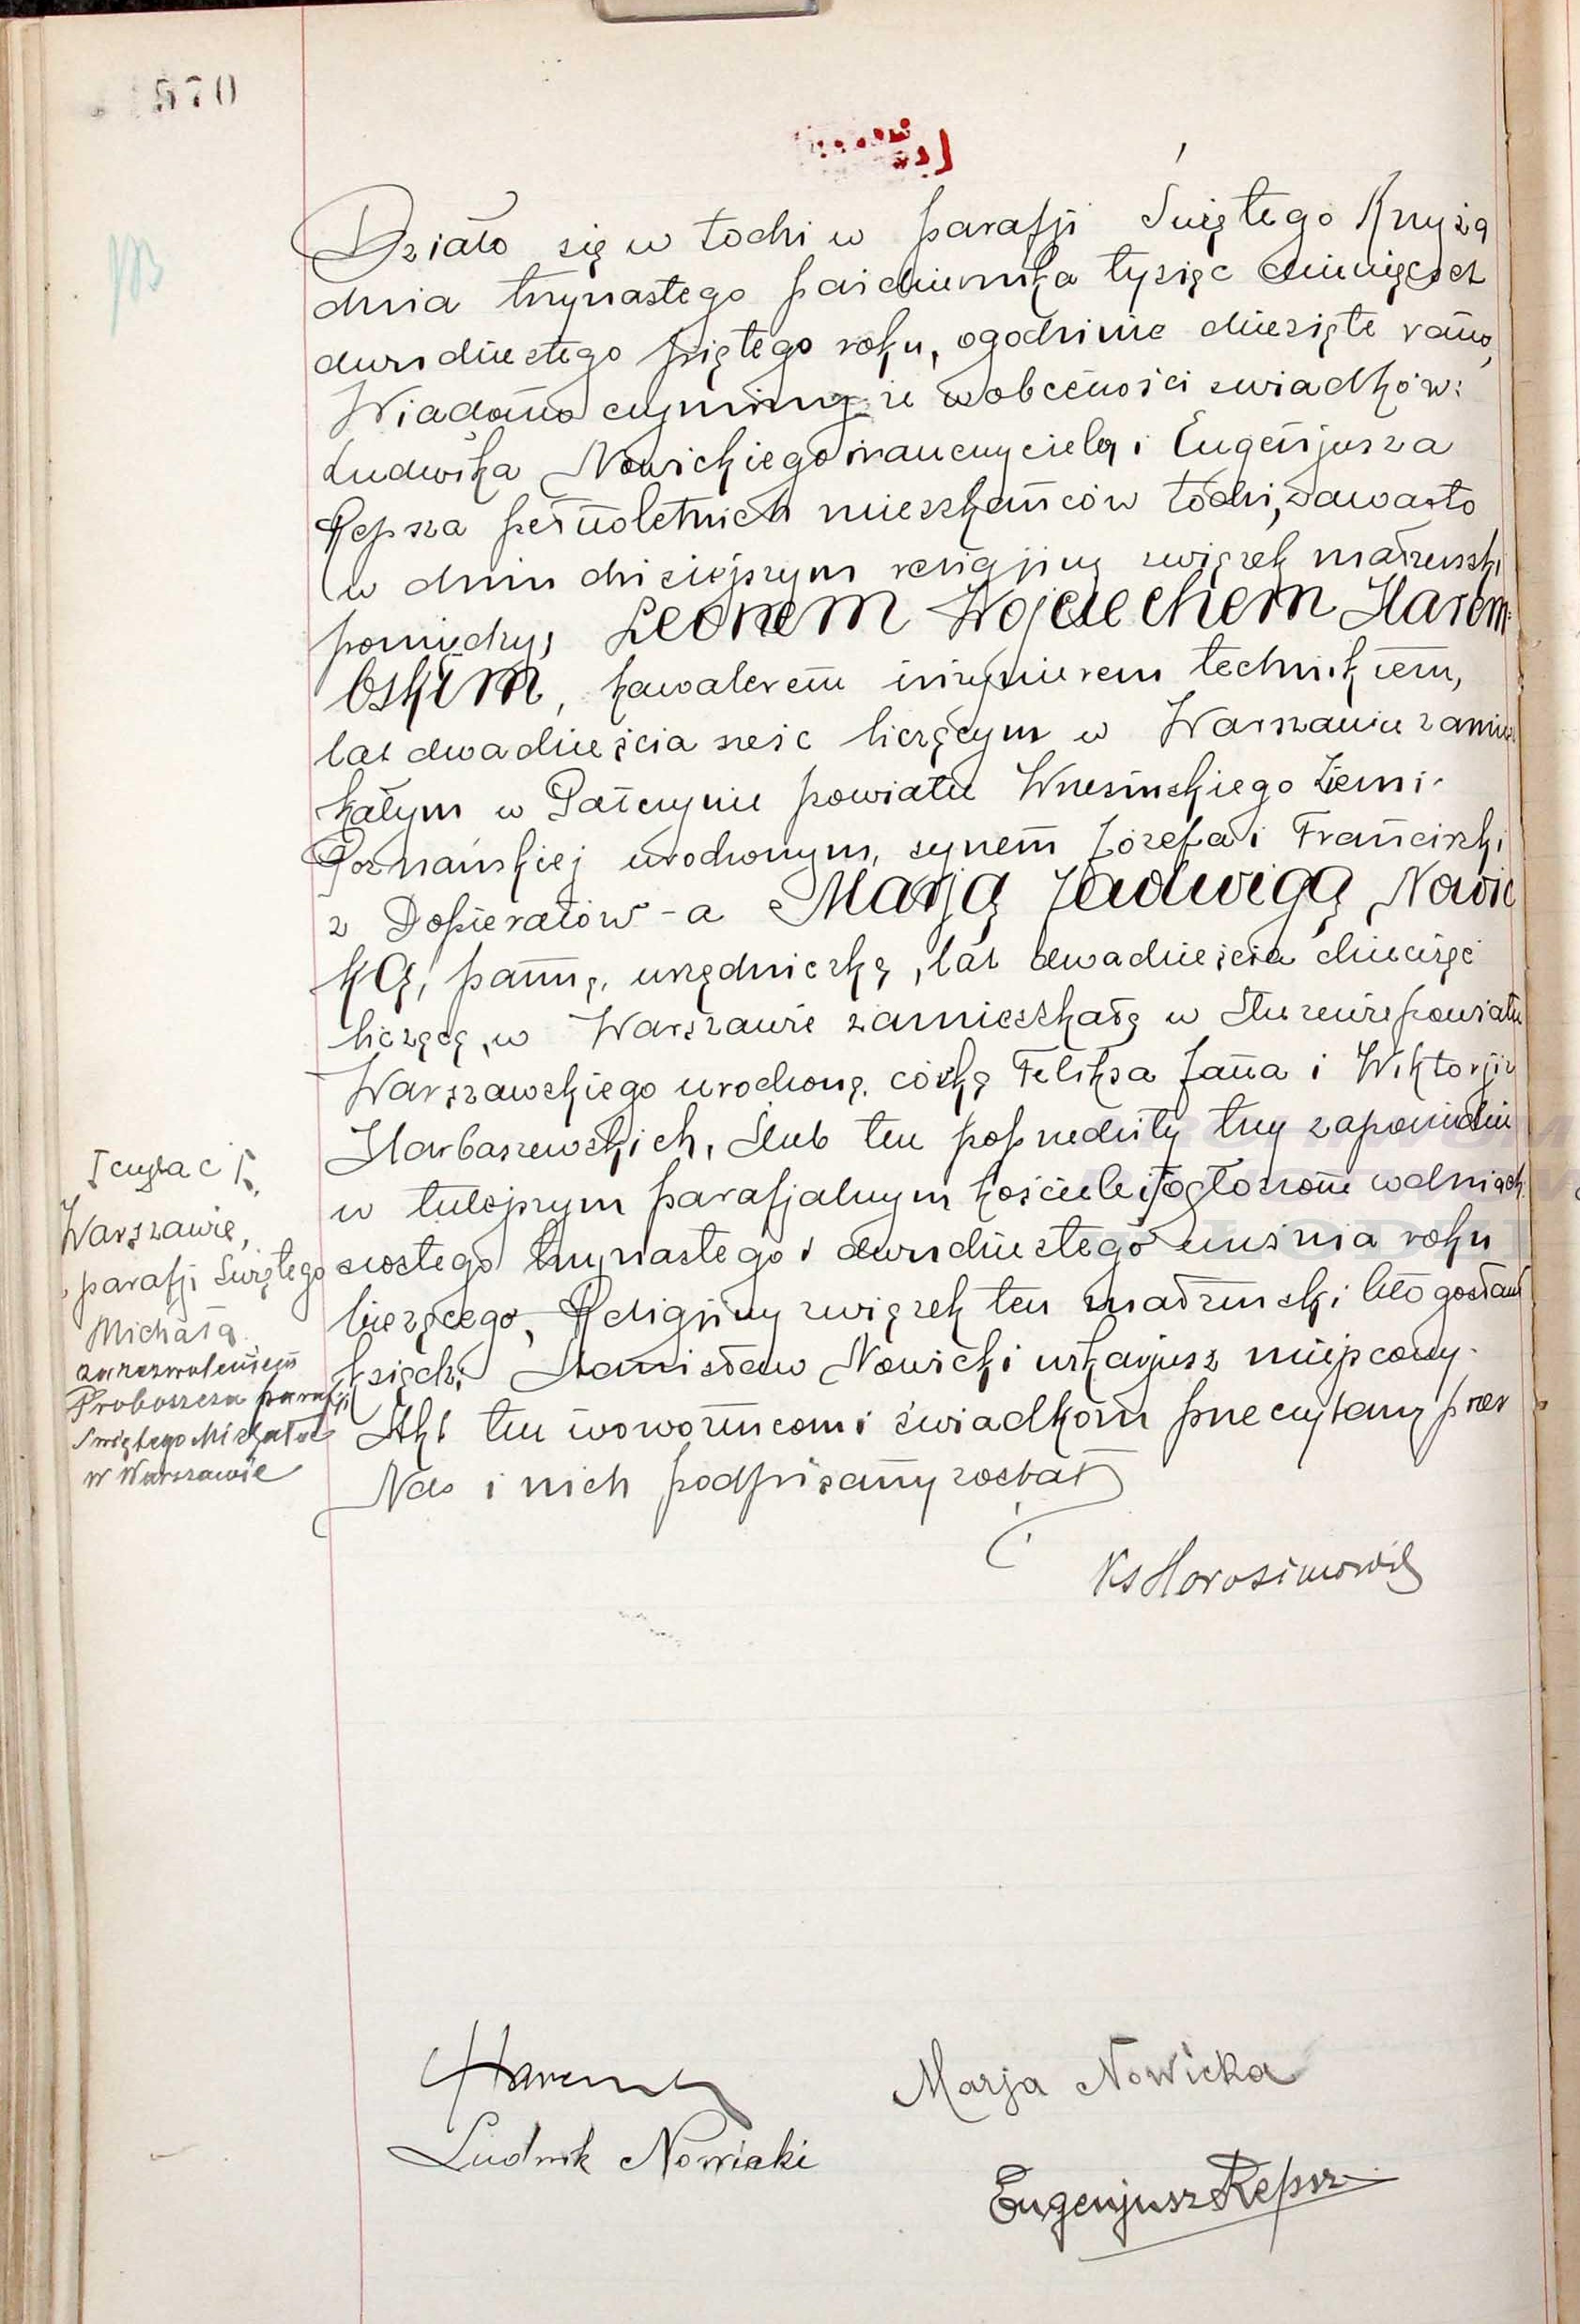 570
Działo się w Łodzi w parafji Świętego Krzyża
dnia trzynastego października tysiąc dziewięćset
dwudziestego piątego roku, o godzinie dziesiąte rano,
Wiadomo czynimy że w obecności świadków:
Ludwika Nowickiego nauczyciela i Eugenjusza
Repsza pełnoletnich mieszkańców Łodzi, zawarto
w dniu dzisiejszym religijny związek małżeński
pomiędzy, Leonem Wojciechem Harem-
bskim, kawalerem inżynierem technikiem,
lat dwadzieścia sześć liczącym w Warszawie zamiesz
kałym w Pałczynie powiatu Wrzesińskiego Ziemi-
Poznańskiej urodzonym, synem Józefa i Franciszki
z Dopierałów - a Marją Jadwigą Nowic
ką, panną, urzędniczką, lat dwadzieścia dziewięć
liczącą, w Warszawie zamieszkałą w Służewie powiatu
Warszawskiego urodzoną, córką Feliksa Jana i Wiktorji z
Harbaszewskich, Ślub ten poprzedziły trzy zapowiedzie
w tutejszym parafjalnym kościele i ogłoszone w dniach
szóstego trzynastego i dwudziestego września roku
bieżącego, Religijny związek ten małżeński błogosławił
ksiądz Stanisław Nowicki wikarjusz miejscowy.
Akt ten nowożeńcom i świadkom przeczytany przez
Nas i nich podpisany został
czytać
Warszawie,
parafji Świętego
Michała
za zezwoleniem
Proboszcza parafji
Świętego Michała
w Warszawie
Marja Nowicka
Ludwik Nowicki
Eugenjusz Repsz